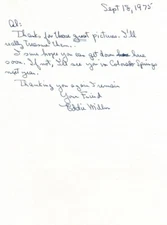 Sept 17, 1975
Al:
Thanks for those great pictures. I'll
really treasure them..
I sure hope you can get down here
soon. If not, I'll see you in Colorado Springs
next year.
Thanking you again I remain
Your Friend
Eddie